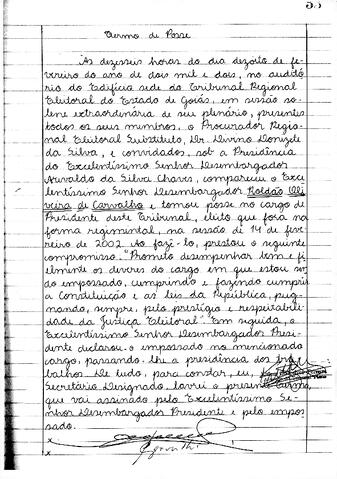 Termo de Posse
As dezesseis horas do dia dezoito de fe-
vereiro do ano de dois mil e dois, no auditó-
rio do Edifício sede do Tribunal Regional
Eleitoral do Estado de Goiás, em sessão so-
lene extraordinária de seu plenário, presentes
todos os seus membros, o Procurador Regio-
nal Eleitoral Substituto, Dr. Divino Donizete
da Silva, e convidados, sob a Presidência
do Excelentíssimo Senhor Desembargador
da Silva Chaves, compareceu o Exce-
lentíssimo Senhor Desembargador Roldão Oli-
veira de Carvalho e tomou posse no cargo de
Presidente deste Tribunal, eleito que fora na
forma regimental, na sessão de 14 de feve-
reiro de 2002. Ao fazê-lo, prestou o seguinte
compromisso: "Prometo desempenhar bem e fi-
elmente os deveres do cargo em que estou sen-
do empossado, cumprindo e fazendo cumprir
a Constituição e as leis da República, pug-
nando, sempre, pelo prestígio e respeitabili-
dade da Justiça Eleitoral". Em seguida, o
Excelentíssimo Senhor Desembargador Presi-
dente declarou o empossado no mencionado
cargo, passando-lhe a presidência dos tra-
balhos. De tudo, para constar, eu,
Secretário Designado, lavrei o presente termo,
que vai assinado pelo Excelentíssimo Se-
nhor Desembargador Presidente e pelo empos-
sado.
x
x